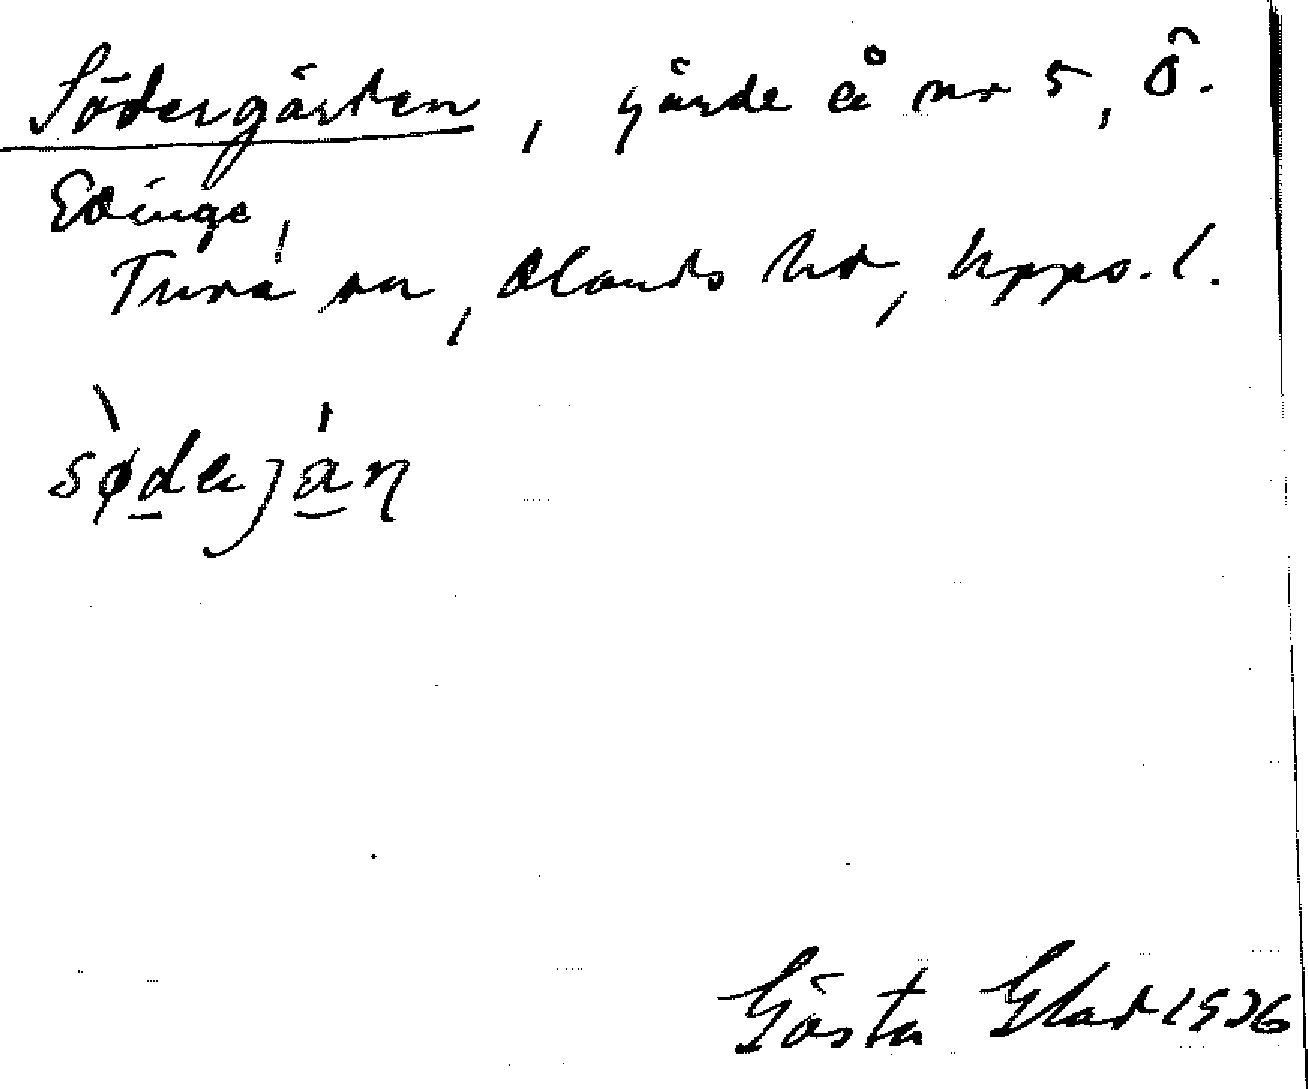 Södergärden, gärde å nr 5, Ö.
Edinge,
Tuna sn, Olands hd, Upps. l.
sødeɹjäṇ
Gösta Glad 1936